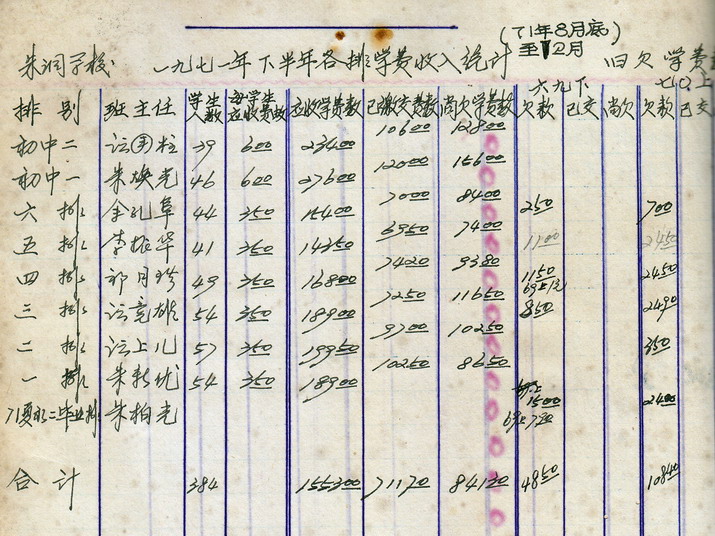 (71年8月底)
至12月
朱洞学校 一九七一年下半年各排学费收入统计 旧欠学费
六九下 七〇上
排别 班主任 学生人数 每学生应收费数 应收学费数 已缴交费数 尚欠学费数 欠款 已交 尚欠 欠款 已交
初中二 39 600 23400 10600 12800
初中一 朱焕光 46 600 27600 12000 15600
六排 余孔阜 44 350 15400 7000 8400 250 700
五排 李振华 41 350 14350 6950 7400 1100 2450
四排 祁月珍 49 350 16800 7420 9380 1150 2450
三排 54 350 18900 7250 11650 850 2490
二排 57 350 19950 9700 10250 350
一排 朱新优 54 350 18900 10250 8650
71夏初二毕业排 朱柏光 1500 2400
合计 384 155300 71170 84130 4850 10840